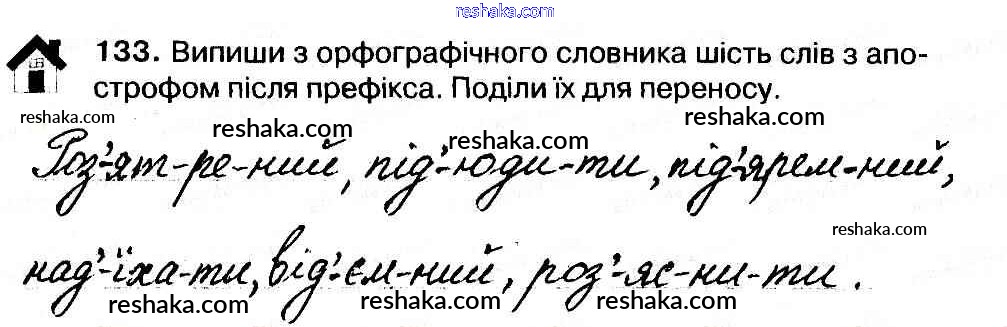 reshaka.com
133. Випиши з орфографічного словника шість слів з апо-
строфом після префікса. Поділи їх для переносу.
reshaka.com reshaka.com reshaka.com reshaka.com
Роз'-ят-ре-ний, під'-юди-ти, під'-ярем-ний,
reshaka.com
над'-їха-ти, від'-єм-ний, роз'-яс-ни-ти.
reshaka.com reshaka.com reshaka.com